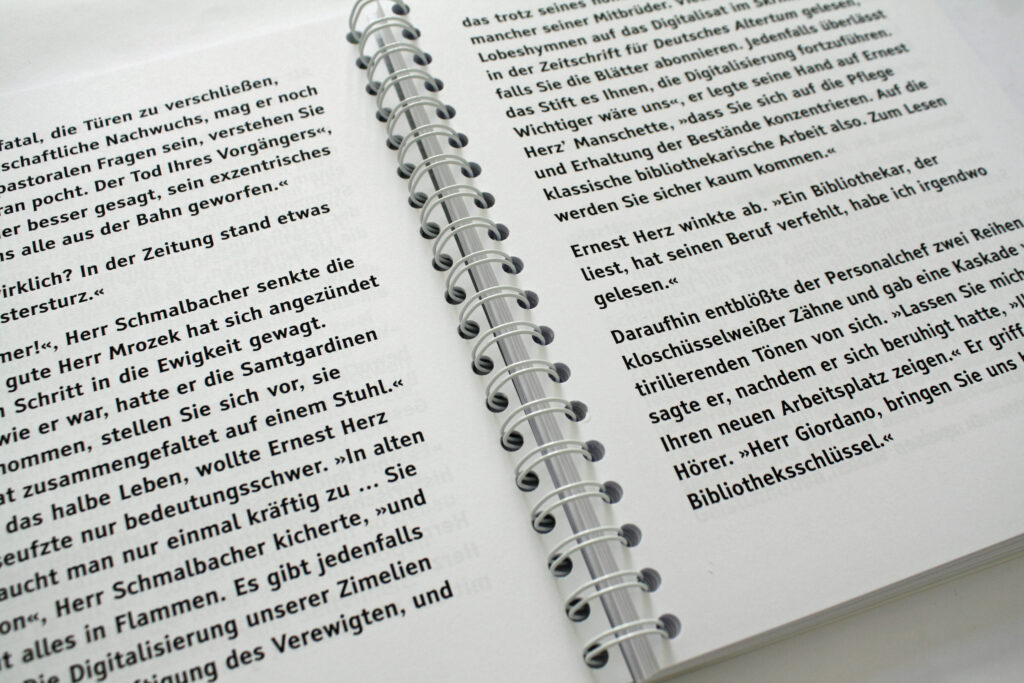 fatal, die Türen zu verschließen,
schaftliche Nachwuchs, mag er noch
pastoralen Fragen sein, verstehen Sie
ran pocht. Der Tod Ihres Vorgängers“,
er besser gesagt, sein exzentrisches
s alle aus der Bahn geworfen.“
wirklich? In der Zeitung stand etwas
stersturz.“
mer!“, Herr Schmalbacher senkte die
gute Herr Mrozek hat sich angezündet
n Schritt in die Ewigkeit gewagt.
wie er war, hatte er die Samtgardinen
nommen, stellen Sie sich vor, sie
at zusammengefaltet auf einem Stuhl.“
das halbe Leben, wollte Ernest Herz
seufzte nur bedeutungsschwer. »In alten
aucht man nur einmal kräftig zu ... Sie
on“, Herr Schmalbacher kicherte, »und
t alles in Flammen. Es gibt jedenfalls
Die Digitalisierung unserer Zimelien
ftigung des Verewigten, und
das trotz seines
mancher seiner Mitbrüder.
Lobeshymnen auf das Digitalisat im
in der Zeitschrift für Deutsches Altertum gelesen,
falls Sie die Blätter abonnieren. Jedenfalls überlässt
das Stift es Ihnen, die Digitalisierung fortzuführen.
Wichtiger wäre uns“, er legte seine Hand auf Ernest
Herz’ Manschette, »dass Sie sich auf die Pflege
und Erhaltung der Bestände konzentrieren. Auf die
klassische bibliothekarische Arbeit also. Zum Lesen
werden Sie sicher kaum kommen.“
Ernest Herz winkte ab. »Ein Bibliothekar, der
liest, hat seinen Beruf verfehlt, habe ich irgendwo
gelesen.“
Daraufhin entblößte der Personalchef zwei Reihen
kloschüsselweißer Zähne und gab eine Kaskade
tirilierenden Tönen von sich. »Lassen Sie mich
sagte er, nachdem er sich beruhigt hatte,
Ihren neuen Arbeitsplatz zeigen.“ Er griff
Hörer. »Herr Giordano, bringen Sie uns
Bibliotheksschlüssel.“